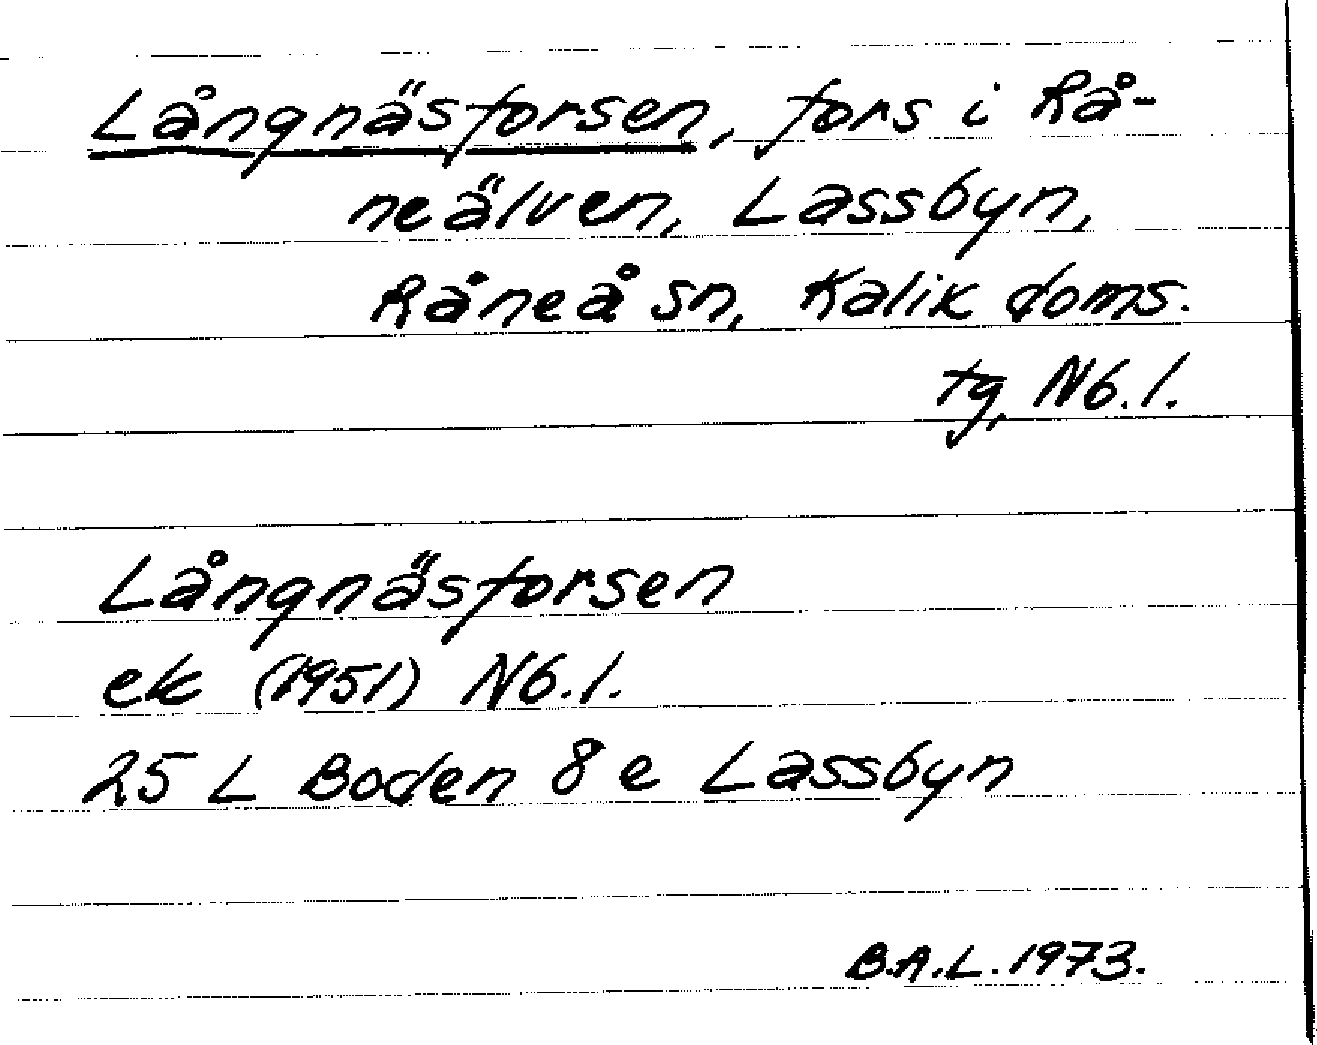 Långnäsforsen, fors i Rå-
neälven, Lassbyn,
Råneå sn, Kalix doms.
tg, Nb.l.
Långnäsforsen
ek (1951) Nb.l.
25 L Boden 8 e Lassbyn
B.A.L. 1973.